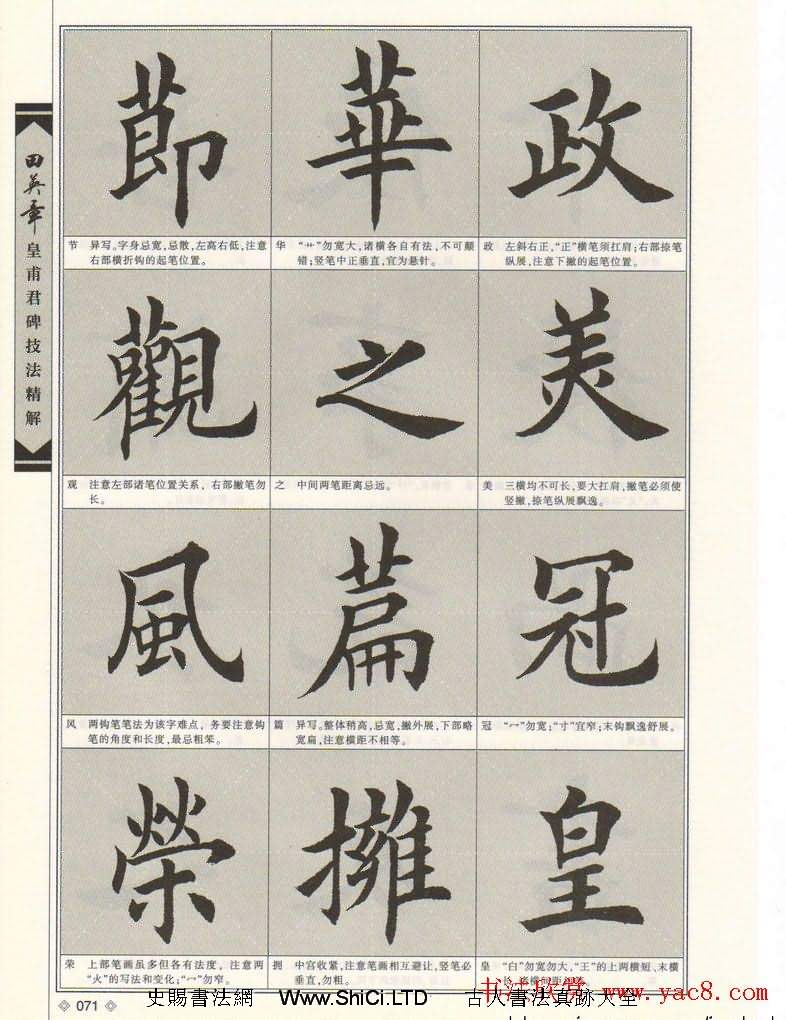 田英章
皇甫君碑技法精解
節
華
政
节 异写。字身忌宽,忌散,左高右低,注意
右部横折钩的起笔位置。
华 “艹”勿宽大,诸横各自有法,不可颠
错;竖笔中正垂直,宜为悬针。
政 左斜右正,“正”横笔须扛肩;右部捺笔
纵展,注意下撇的起笔位置。
觀
之
美
观 注意左部诸笔位置关系,右部撇笔勿
长。
之 中间两笔距离忌远。
美 三横均不可长,要大扛肩,撇笔必须使
竖撇,捺笔纵展飘逸。
風
篇
冠
风 两钩笔笔法为该字难点,务要注意钩
笔的角度和长度,最忌粗笨。
篇 异写。整体稍高,忌宽,撇外展,下部略
宽扁,注意横距不相等。
冠 “冖”勿宽;“寸”宜窄;末钩飘逸舒展。
榮
擁
皇
荣 上部笔画虽多但各有法度,注意两
“火”的写法和变化;“冖”勿窄。
拥 中宫收紧,注意笔画相互避让,竖笔必
垂直,勿粗。
皇 “白”勿宽勿大,“王”的上两横短、末横
071
史賜書法網 Www.ShiCi.LTD 古人書法真跡大全
书法欣赏 www.yac8.com